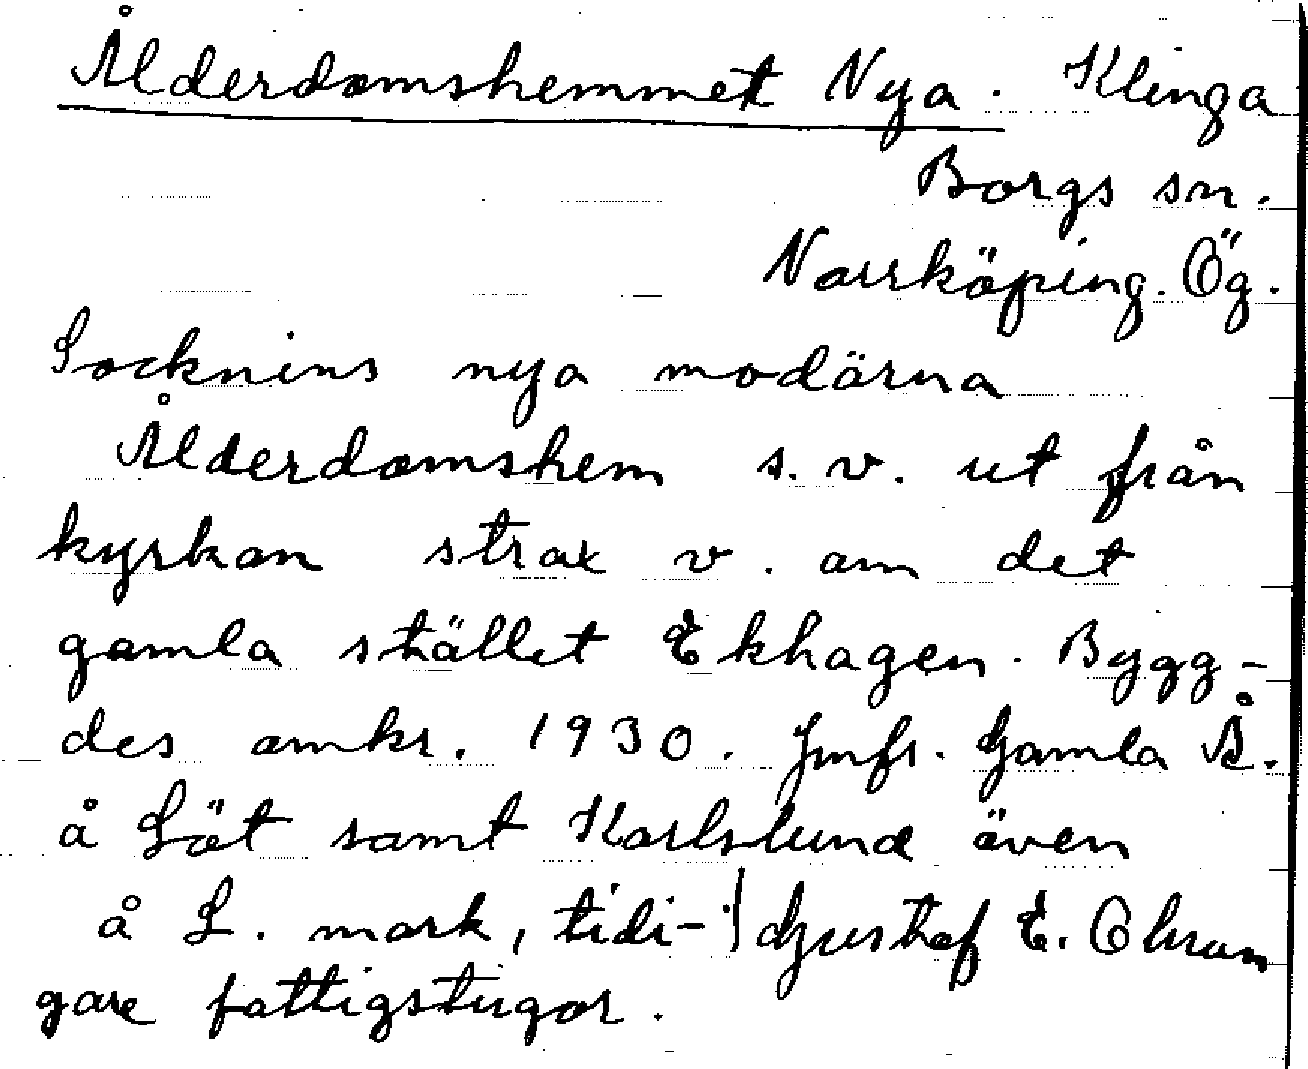 Ålderdomshemmet Nya. Klinga
Borgs sn.
Norrköping. Ög.
Socknins nya modärna
Ålderdomshem s.v. ut från
kyrkan strax v. om det
gamla stället Ekhagen. Bygg-
des omkr. 1930. Jmfr. Gamla Å.
å Löt samt Karlslund även
å L. mark, tidi-
gare fattigstugor.
Gustaf E. Ohran